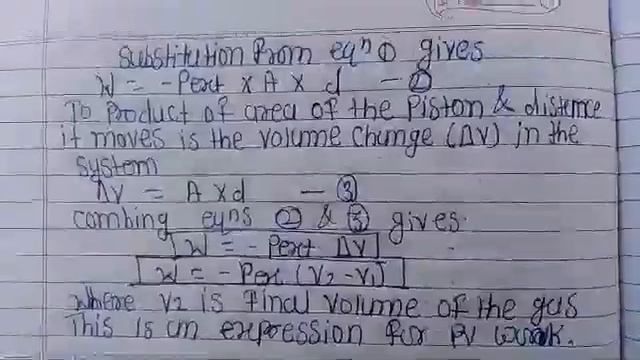 Substitution from eqⁿ ① gives
W = - Pext x A x d — ②
To Product of area of the Piston & distance
it moves is the volume change (ΔV) in the
system
ΔV = A x d — ③
combing eqns ② & ③ gives.
W = - Pext ΔV
W = - Pex (V₂ - V₁)
where V₂ is final volume of the gas
This is an expression for PV work.